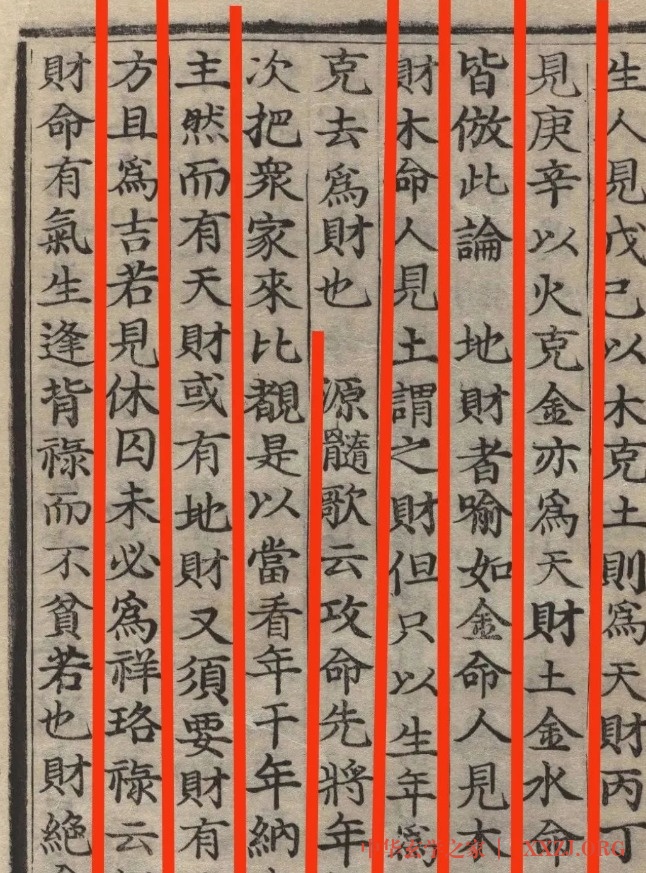 生人見戊己以木克土則爲天財丙丁
見庚辛以火克金亦爲天財土金水命
皆倣此論　地財者喻如金命人見木
財木命人見土謂之財但只以生年爲
克去爲財也　源髓歌云攻命先將年
次把衆家來比覩是以當看年干年納
主然而有天財或有地財又須要財有
方且爲吉若見休囚未必爲祥珞祿云
財命有氣生逢背祿而不貧若也財絶